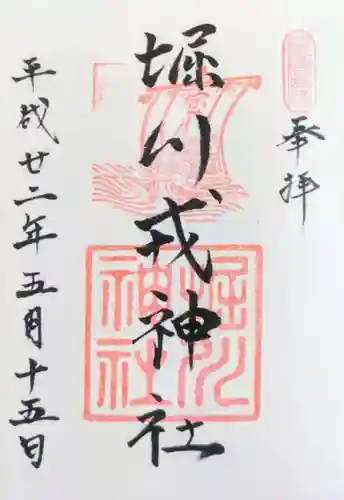 奉拝
堀川戎神社
堀川
神社
平成廿二年五月十五日